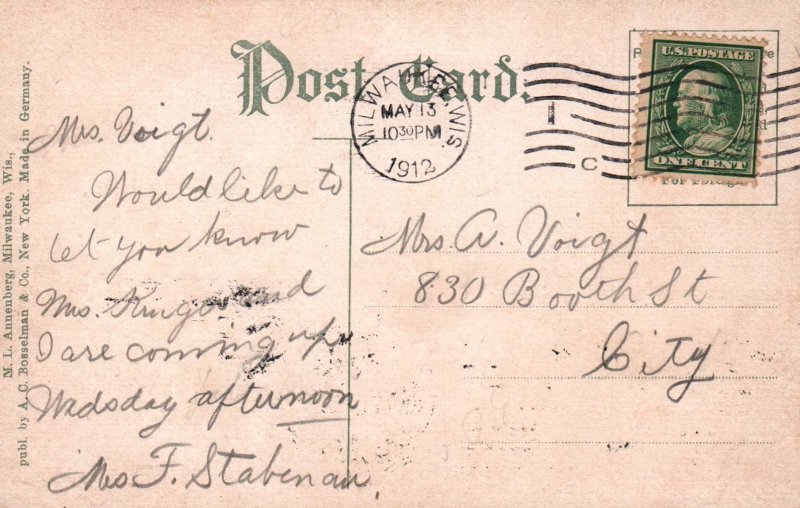 Post Card.
MILWAUKEE, WIS.
MAY 13
10 30 PM
1912
C
U.S. POSTAGE
ONE CENT
For Foreign
M. L. Annenberg, Milwaukee, Wis.,
publ. by A. C. Bosselman & Co., New York. Made in Germany.
Mrs. Voigt.
Would like to
let you know
Mrs. and
I are coming up
Wedsday afternoon
Mrs F. Stabenau,
Mrs. A. Voigt
830 Booth St
City